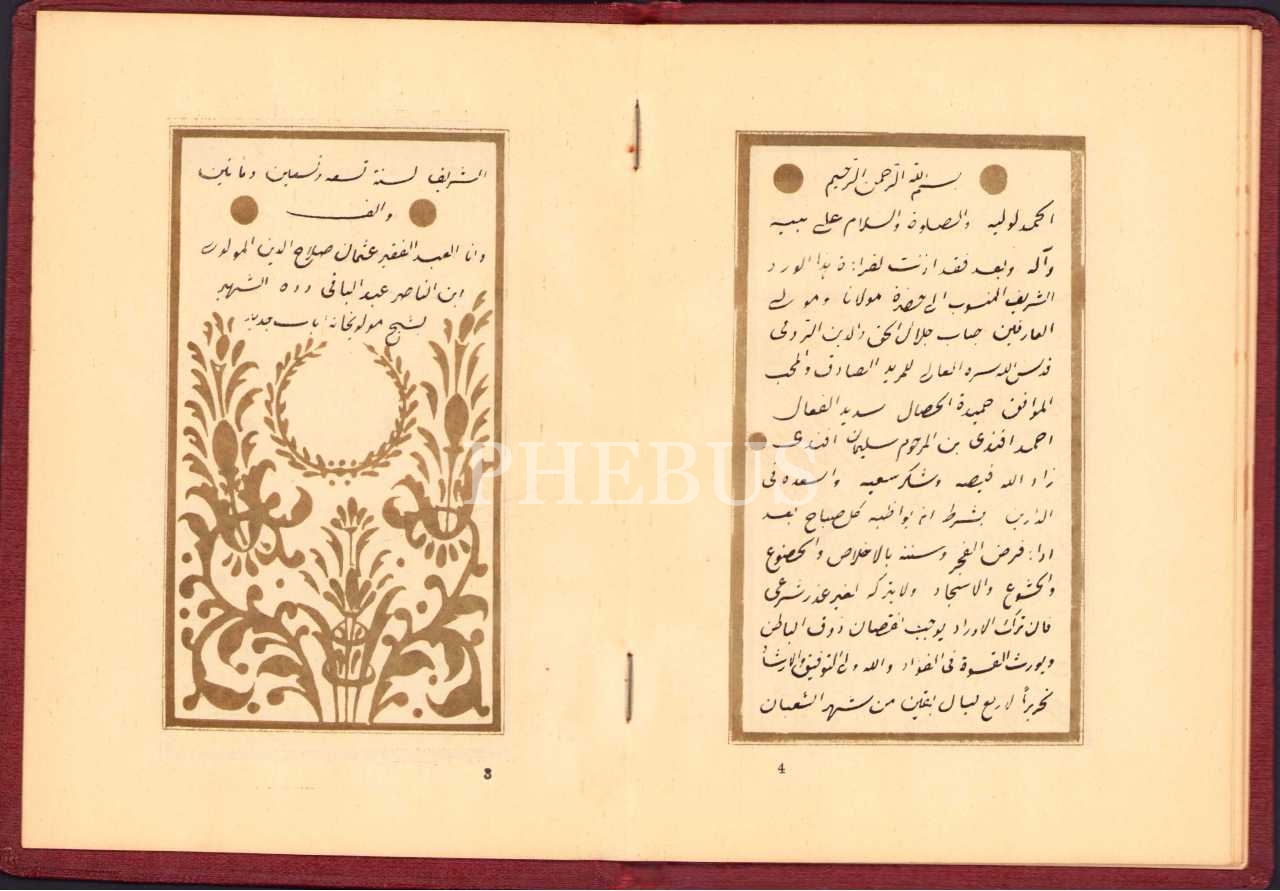 بسم الله الرحمن الرحيم
الحمد لوليه والصلوة والسلام على نبيه
وآله وبعد فقد اذنت لقراءة هذا الورد
الشريف المنسوب الى حضرة مولانا ومولى
العارفين جناب جلال الحق والدين الرومى
قدس الله سره العالى للمريد الصادق والمحب
الموافق حميدة الخصال سديد الفعال
احمد افندى بن المرحوم سليمان افندى
زاد الله فيضه وشكر سعيه واسعده فى
الدارين بشرط ان يواظبه كل صباح بعد
اداء فرض الفجر وسننه بالاخلاص والخضوع
والخشوع ولا يتركه لغير عذر شرعى
فان ترك الاوراد يوجب نقصان ذوق الباطن
ويورث القسوة فى الفؤاد والله ولى التوفيق والارشاد
تحريراً لاربع ليال بقين من شهر الشعبان
4
الشريف لسنة تسعه وتسعين ومائتين
والف
وانا العبد الفقير عثمان صلاح الدين المولوى
ابن الناصر عبد الباقى دده الشهير
بشيخ مولويخانه باب جديد
3
PHEBUS